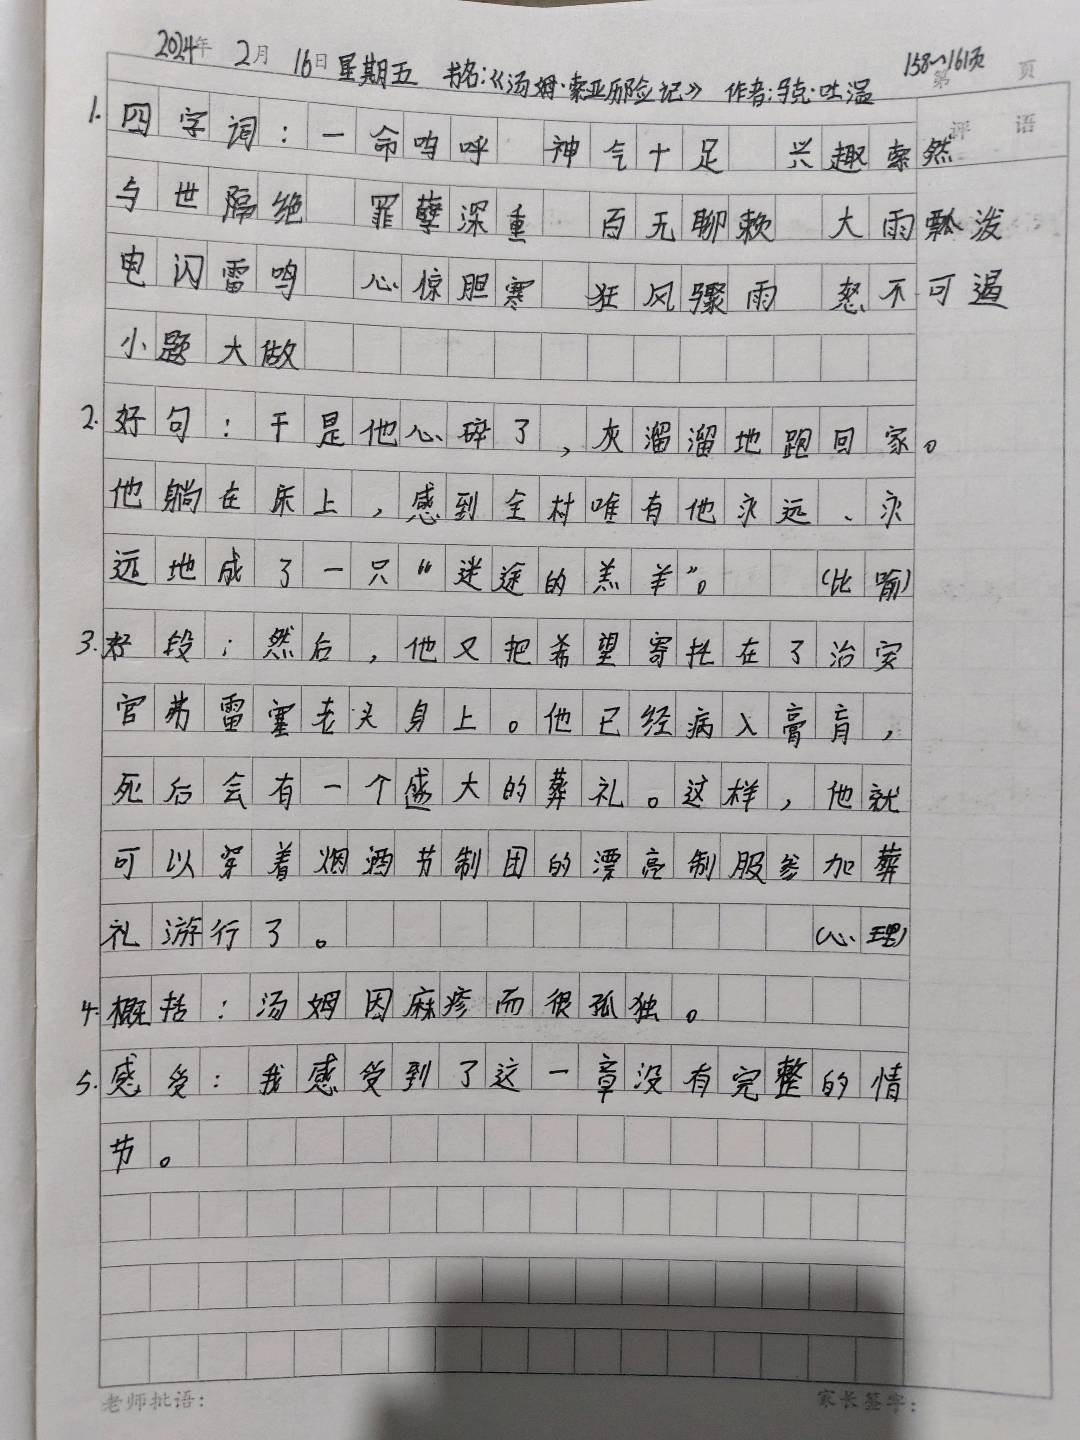 2024年 2月 16日 星期五 书名:《汤姆·索亚历险记》 作者:马克·吐温 158~161页
第 页
评 语
1. 四字词：一命呜呼 神气十足 兴趣索然
与世隔绝 罪孽深重 百无聊赖 大雨飘泼
电闪雷鸣 心惊胆寒 狂风骤雨 怒不可遏
小题大做
2. 好句：于是他心碎了，灰溜溜地跑回家。
他躺在床上，感到全村唯有他永远、永
远地成了一只“迷途的羔羊”。 (比喻)
3. 好段：然后，他又把希望寄托在了治安
官弗雷塞老头身上。他已经病入膏肓，
死后会有一个盛大的葬礼。这样，他就
可以穿着烟酒节制团的漂亮制服参加葬
礼游行了。 (心理)
4. 概括：汤姆因麻疹而很孤独。
5. 感受：我感受到了这一章没有完整的情
节。
老师批语： 家长签字：